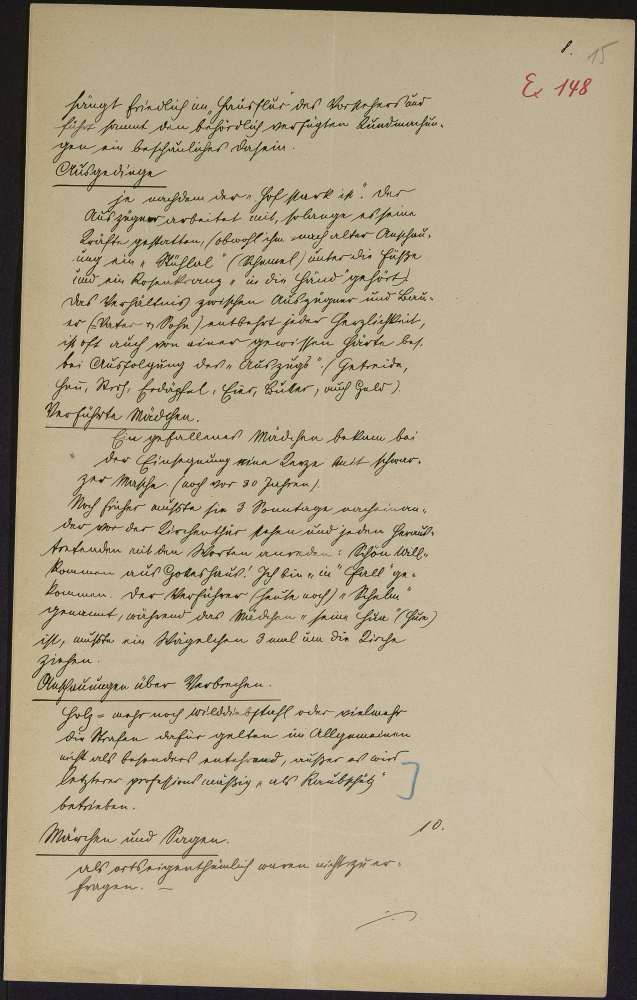 8. 15
Ex 148
hängt friedlich im "Hausflur" des Vorstehers und
führt sammt den behördlich verfügten Kundmachun-
gen ein beschauliches Dasein.
Ausgedinge
je nachdem der "Hof stark is". Der
Auszügner arbeitet mit, solange es seine
Kräfte gestatten, (obwohl ihm nach alter Anschau-
ung ein "Stühlal" (Schemel) unter die Füße
und ein Rosenkranz "in die Händ" gehört).
Das Verhältnis zwischen Auszügner und Bau-
er (= Vater & Sohn) entbehrt jeder Herzlichkeit,
ist oft auch von einer gewissen Härte bes.
bei Ausfolgung des "Auszugs". (Getreide,
Heu, Stroh, Erdäpfel, Eier, Butter, auch Geld).
Verführte Mädchen.
Ein gefallenes Mädchen bekam bei
der Einsegnung eine Kerze mit schwar-
zer Masche. (noch vor 30 Jahren).
Noch früher mußte sie 3 Sonntage nacheinan-
der vor der Kirchenthür stehen und jeden Heraus-
tretenden mit den Worten anreden: Schön Will-
kommen aus Gottes Haus! Ich bin "in" Fall "ge-
kommen. Der Verführer (heute noch) "Schelm"
genannt, während das Mädchen "seine Hua" (Hure)
ist, mußte ein Wägelchen 3 mal um die Kirche
ziehen.
Anschauungen über Verbrechen.
Holz- mehr noch Wilddiebstahl oder vielmehr
die Strafen dafür gelten im Allgemeinen
nicht als besonders entehrend, außer es wird
letzterer professionsmäßig "als Raubschütz"
betrieben.
Märchen und Sagen. 10.
als ortseigenthümlich waren nicht zu er-
fragen. —